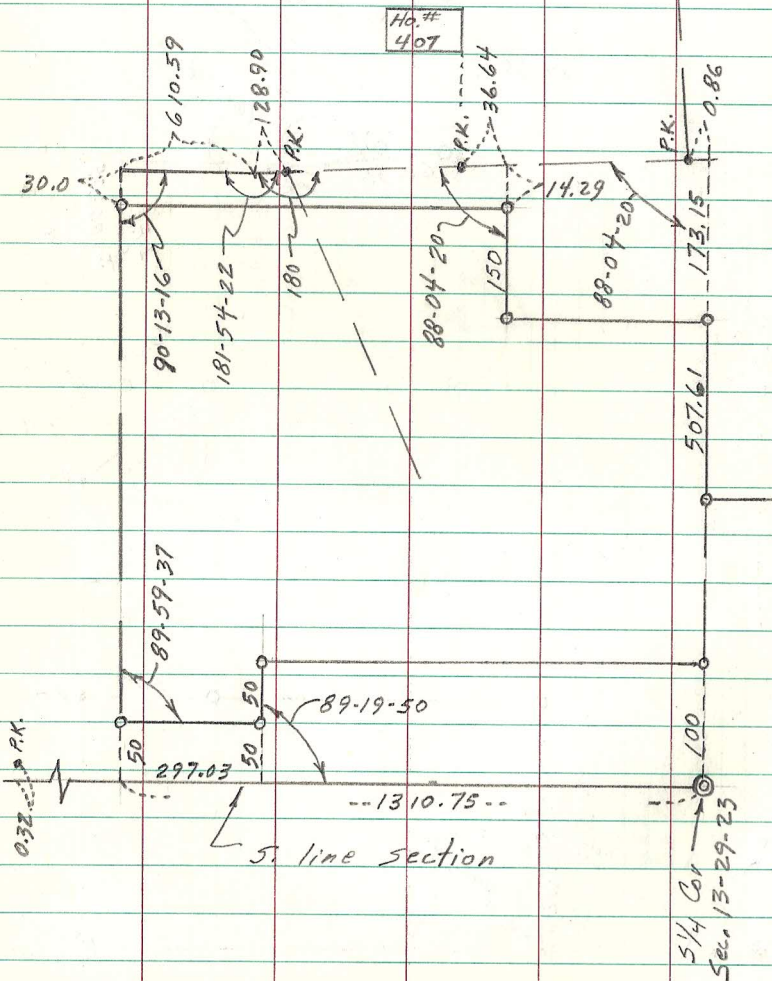 Ho.#
407
610.59
128.90
P.K.
P.K.
36.64
P.K.
0.86
30.0
14.29
90-13-16
181-54-22
180
88-04-20
150
88-04-20
173.15
507.61
89-59-37
50
89-19-50
100
P.K.
0.32
50
297.03
50
--1310.75--
S. line section
S 1/4 Cor
Sec. 13-29-23